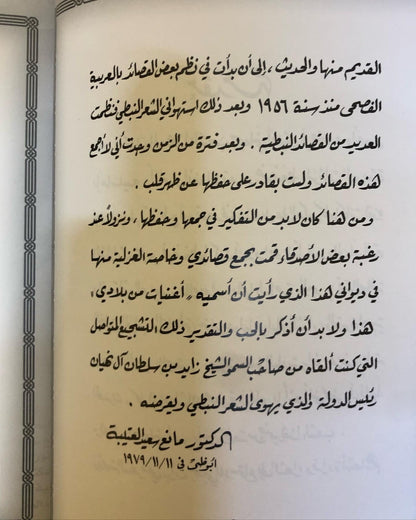 القديم منها والحديث ، إلى أن بدأت في نظم بعض القصائد بالعربية
الفصحى منذ سنة ١٩٥٦ وبعد ذلك استهواني الشعر النبطي فنظمت
العديد من القصائد النبطية . وبعد فترة من الزمن وجدت أني لا أجمع
هذه القصائد ولست بقادر على حفظها عن ظهر قلب .
ومن هنا كان لابد من التفكير في جمعها وحفظها ، ونزولاً عند
رغبة بعض الأصدقاء قمت بجمع قصائدي وخاصة الغزلية منها
في ديواني هذا الذي رأيت أن أسميه " أغنيات من بلادي "
هذا ولا بد أن أذكر بالحب والتقدير ذلك التشجيع المتواصل
التي كنت ألقاه من صاحب السمو الشيخ زايد بن سلطان آل نهيان
رئيس الدولة والذي يهوى الشعر النبطي ويقرضه .
الدكتور مانع سعيد العتيبة
أبوظبى في ١١/١١/١٩٧٩